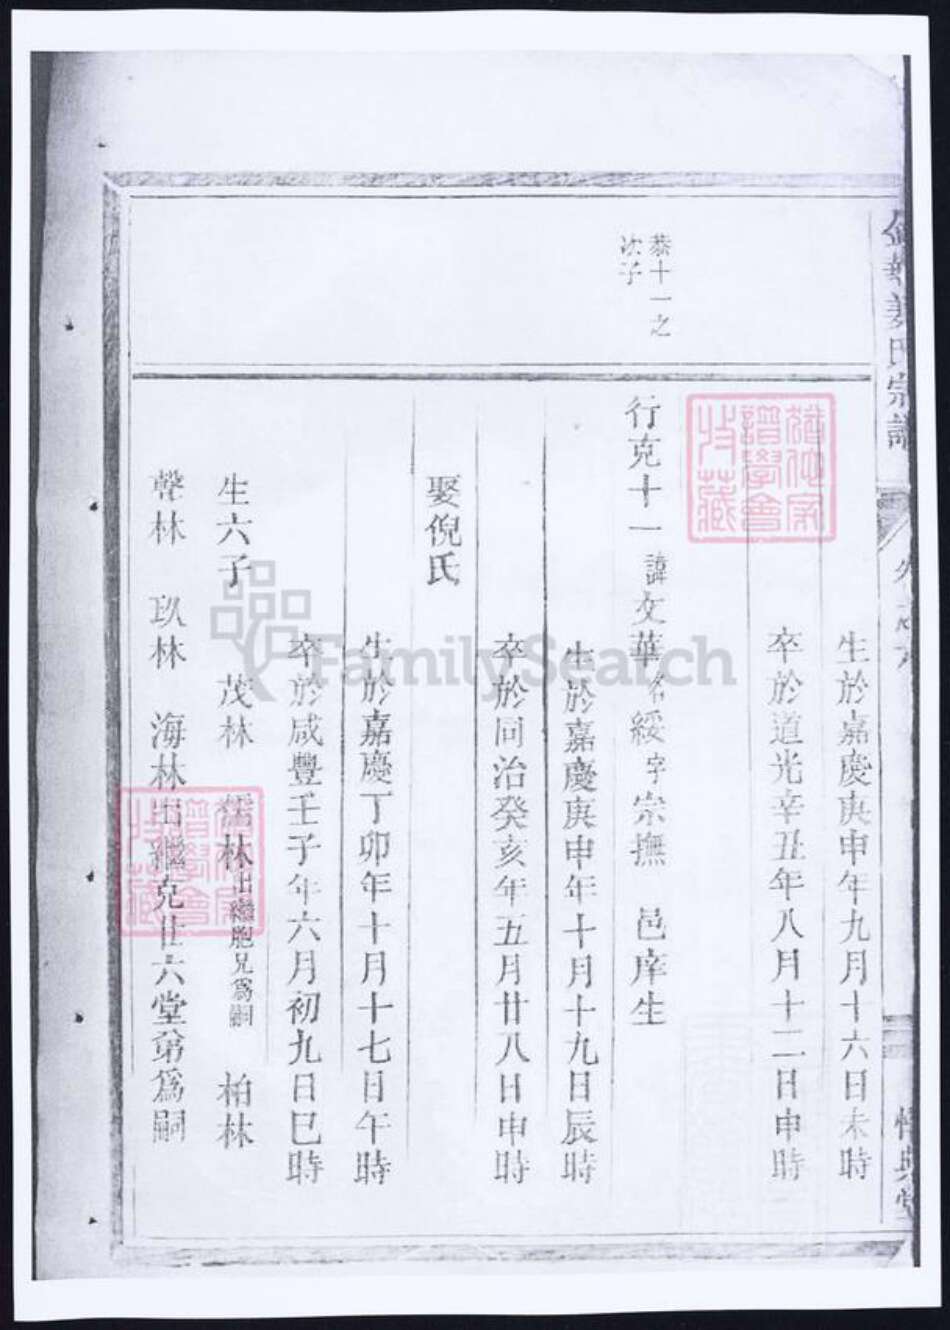 金華姜氏宗譜
生於嘉慶庚申年九月十六日未時
卒於道光辛丑年八月十二日申時
恭十一之
次子
行克十一 諱文華名綏字宗撫 邑庠生
生於嘉慶庚申年十月十九日辰時
卒於同治癸亥年五月廿八日申時
娶倪氏
生於嘉慶丁卯年十月十七日午時
卒於咸豐壬子年六月初九日巳時
生六子 茂林 儒林出繼胞兄為嗣 柏林
聲林 玖林 海林出繼克廿六堂弟為嗣
譜學會
收藏
譜學會
收藏
FamilySearch